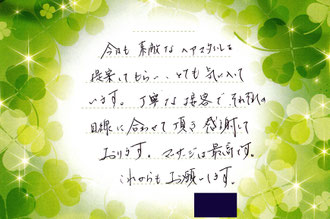 今回も素敵なヘアスタイルを
提案してもらい、とても気に入って
います。丁寧な接客で
目線に合わせて頂き感謝して
おります。マッサージは最高です。
これからもお願いします。